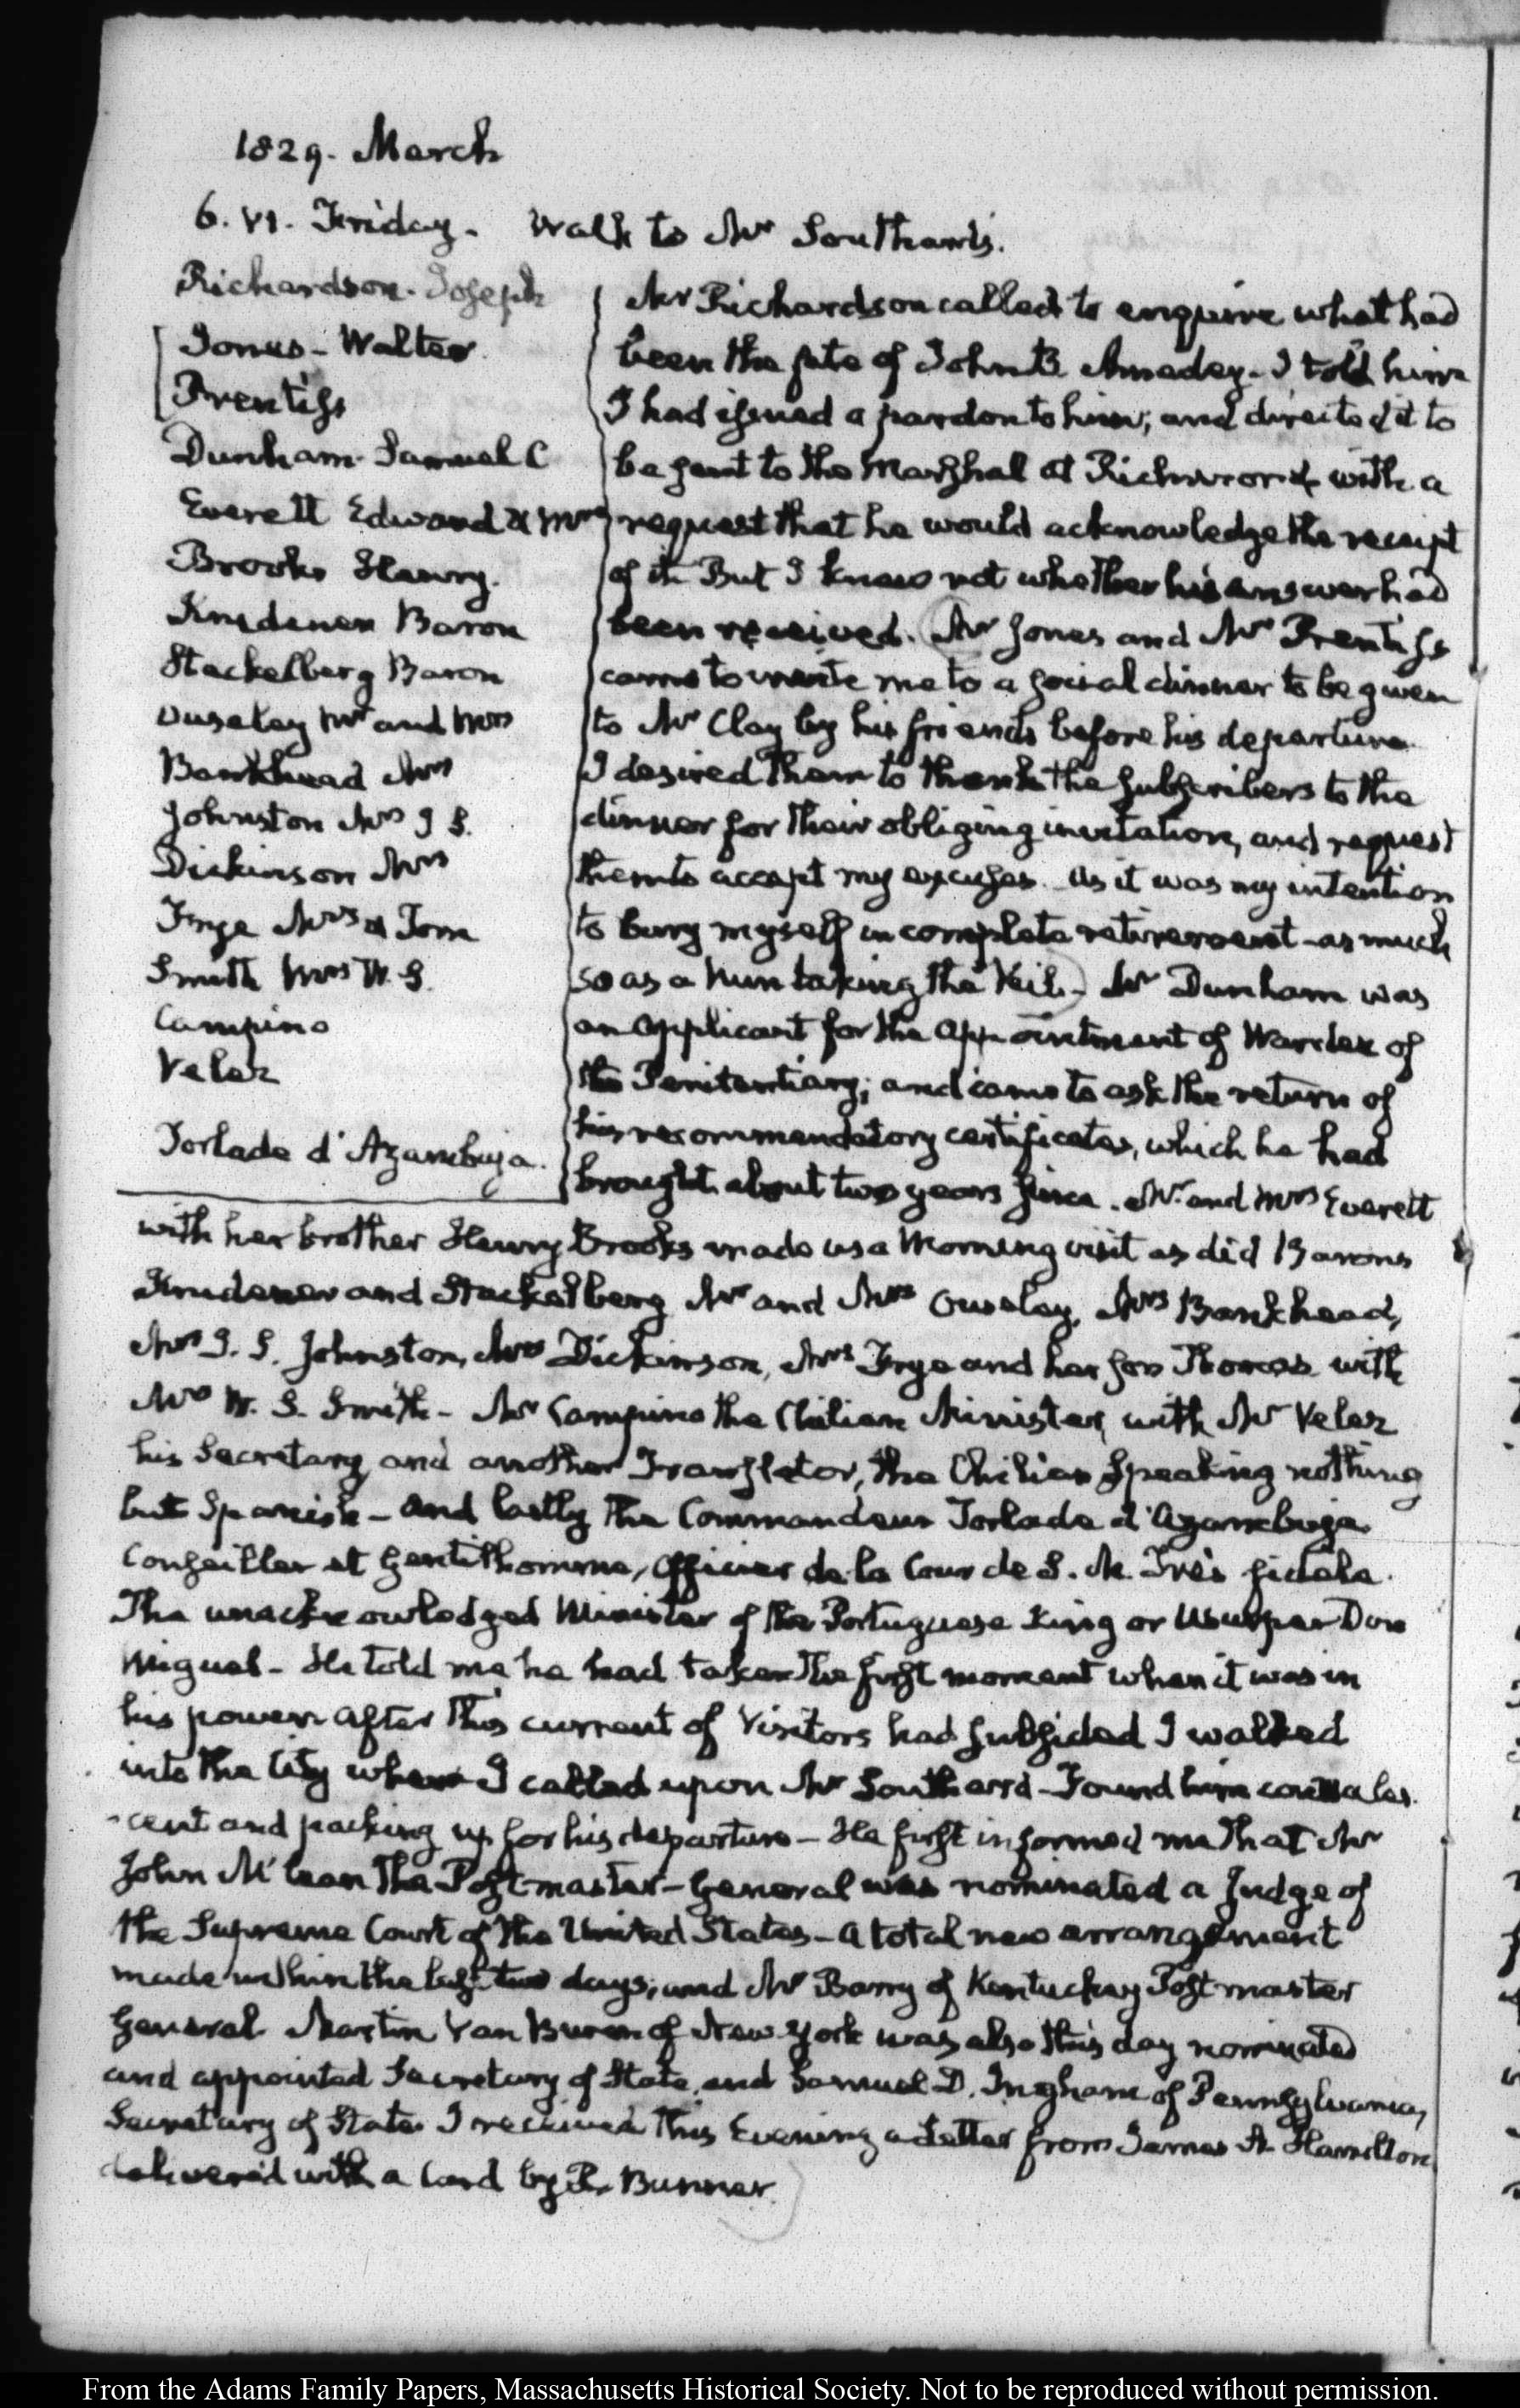 1829. March
6. VI. Friday. Walk to Mr Southard's.
Richardson. Joseph
Jones - Walter
Prentiss
Dunham. Samuel C
Everett Edward & Mrs
Brooks Henry.
Krudener Baron
Stackelberg Baron
Ouseley Mr and Mrs
Bankhead Mrs
Johnston Mrs J S.
Dickinson Mrs
Inge Mrs & Tom
Smith Mrs W. S.
Campino
Velez
Torlade d'Azambuja.
Mr Richardson called to enquire what had
been the fate of John B. Amadey - I told him
I had issued a pardon to him; and directed it to
be sent to the Marshal at Richmond with a
request that he would acknowledge the receipt
of it. But I knew not whether his answer had
been received. Mr Jones and Mr Prentiss
came to invite me to a social dinner to be given
to Mr Clay by his friends before his departure.
I desired them to thank the subscribers to the
dinner for their obliging invitation, and request
them to accept my excuses. As it was my intention
to bury myself in complete retirement - as much
so as a Nun taking the Veil - Mr Dunham was
an applicant for the appointment of Warden of
the Penitentiary; and came to ask the return of
his recommendatory certificates, which he had
brought about two years since. Mr. and Mrs Everett
with her brother Henry Brooks made us a Morning visit as did Barons
Krudener and Stackelberg Mr and Mrs Ouseley, Mrs Bankhead,
Mrs J. S. Johnston, Mrs Dickinson, Mrs Inge and her son Thomas with
Mrs W. S. Smith - Mr Campino the Chilian Minister, with Mr Velez
his Secretary and another Translator, the Chilian speaking nothing
but Spanish - And lastly the Commandeur Torlade d'Azambuja
Conseiller et Gentilhomme, Officier de la Cour de S. M. Très fidèle.
The unacknowledged Minister of the Portuguese King or Usurper Don
Miguel - He told me he had taken the first moment when it was in
his power. After this current of Visitors had subsided I walked
into the City where I called upon Mr Southard - Found him convales-
-cent and packing up for his departure - He first informed me that Mr
John McLean the Post-master-General was nominated a Judge of
the Supreme Court of the United States - A total new arrangement
made within the last two days; and Mr Barry of Kentucky Post master
General. Martin Van Buren of New York was also this day nominated
and appointed Secretary of State, and Samuel D. Ingham of Pennsylvania,
Secretary of State. I received this Evening a Letter from James A. Hamilton
delivered with a Card by R. Bunner.
From the Adams Family Papers, Massachusetts Historical Society. Not to be reproduced without permission.